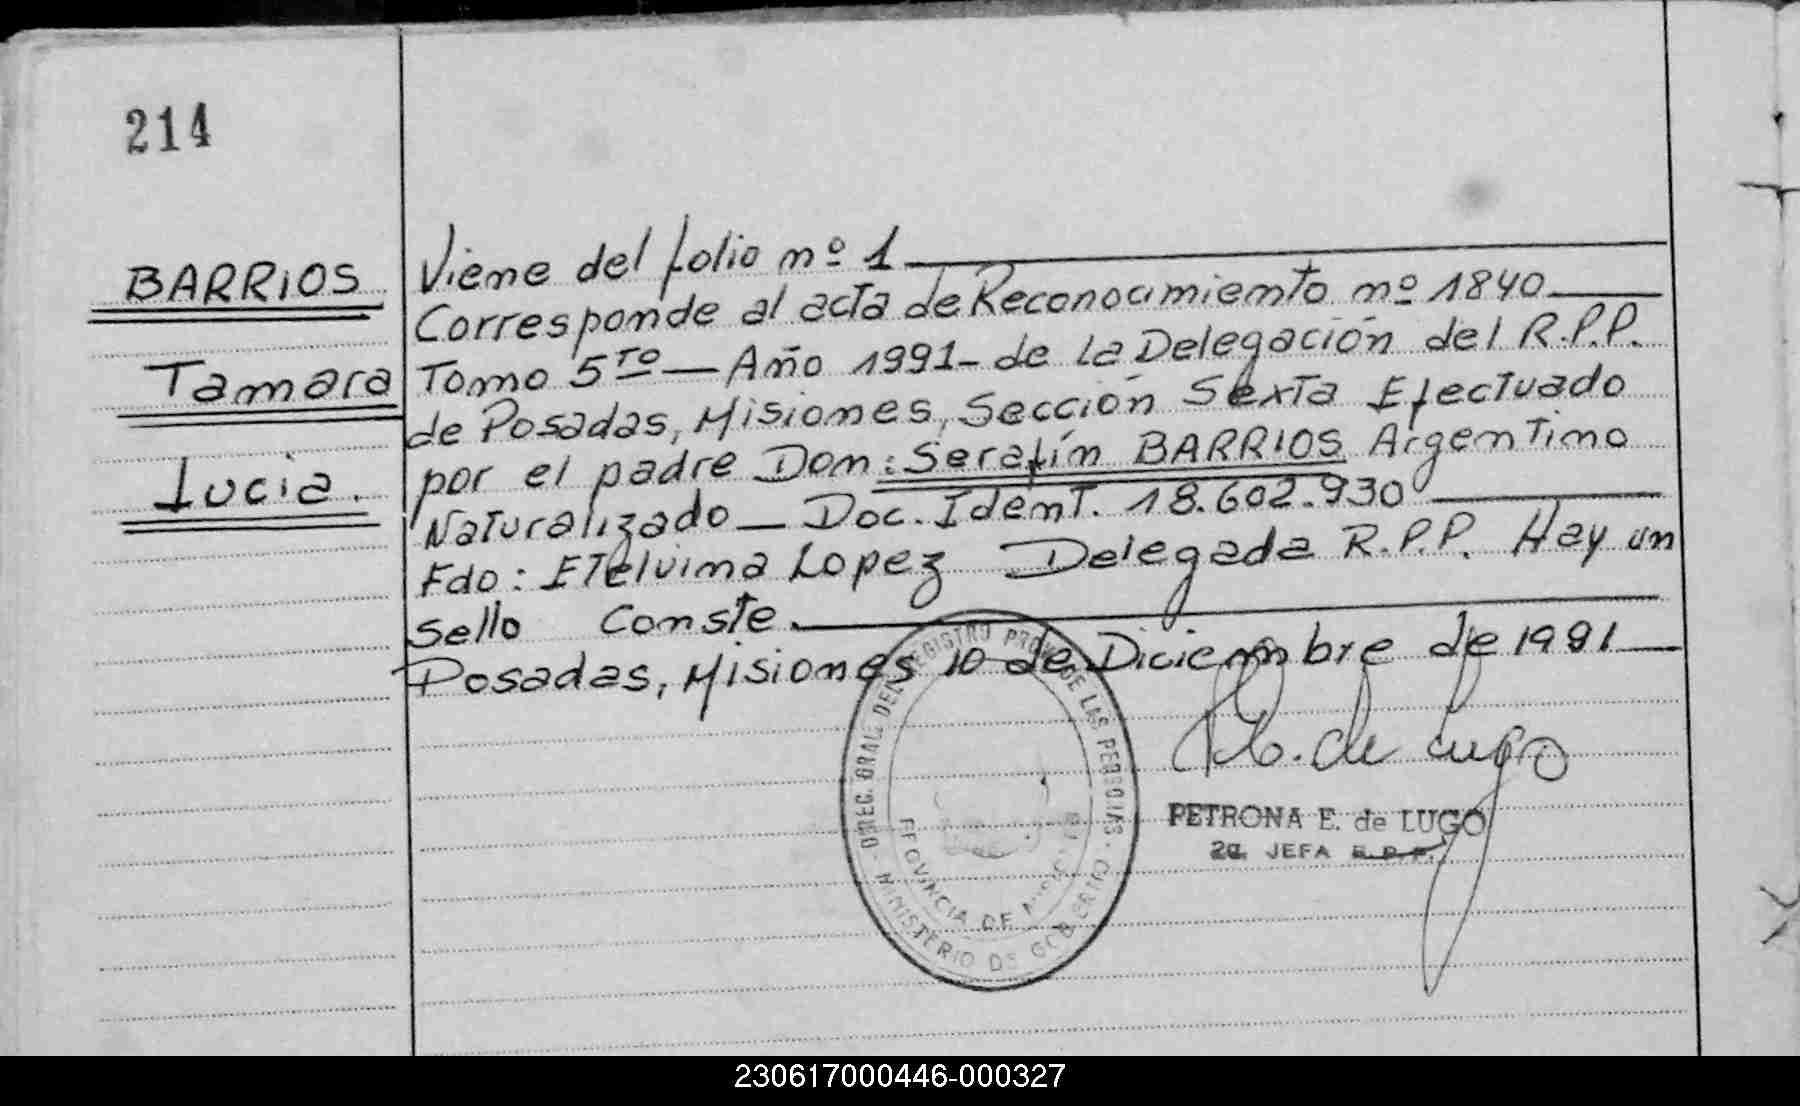 214
BARRIOS
Tamara
Lucia.
Viene del folio nº 1
Corresponde al acta de Reconocimiento nº 1840
Tomo 5TO — Año 1991- de la Delegación del R.P.P.
de Posadas, Misiones, Sección Sexta Efectuado
por el padre Don: Serafín BARRIOS Argentino
Naturalizado — Doc. Ident. 18.602.930
Fdo: Etelvina Lopez Delegada R.P.P. Hay un
sello Conste.
Posadas, Misiones 10 de Diciembre de 1991
de Lugo
PETRONA E. de LUGO
2a. JEFA R.P.P.
DIREC. GRAL. DEL REGISTRO PROV. DE LAS PERSONAS
PROVINCIA DE MISIONES
MINISTERIO DE GOBIERNO
230617000446-000327